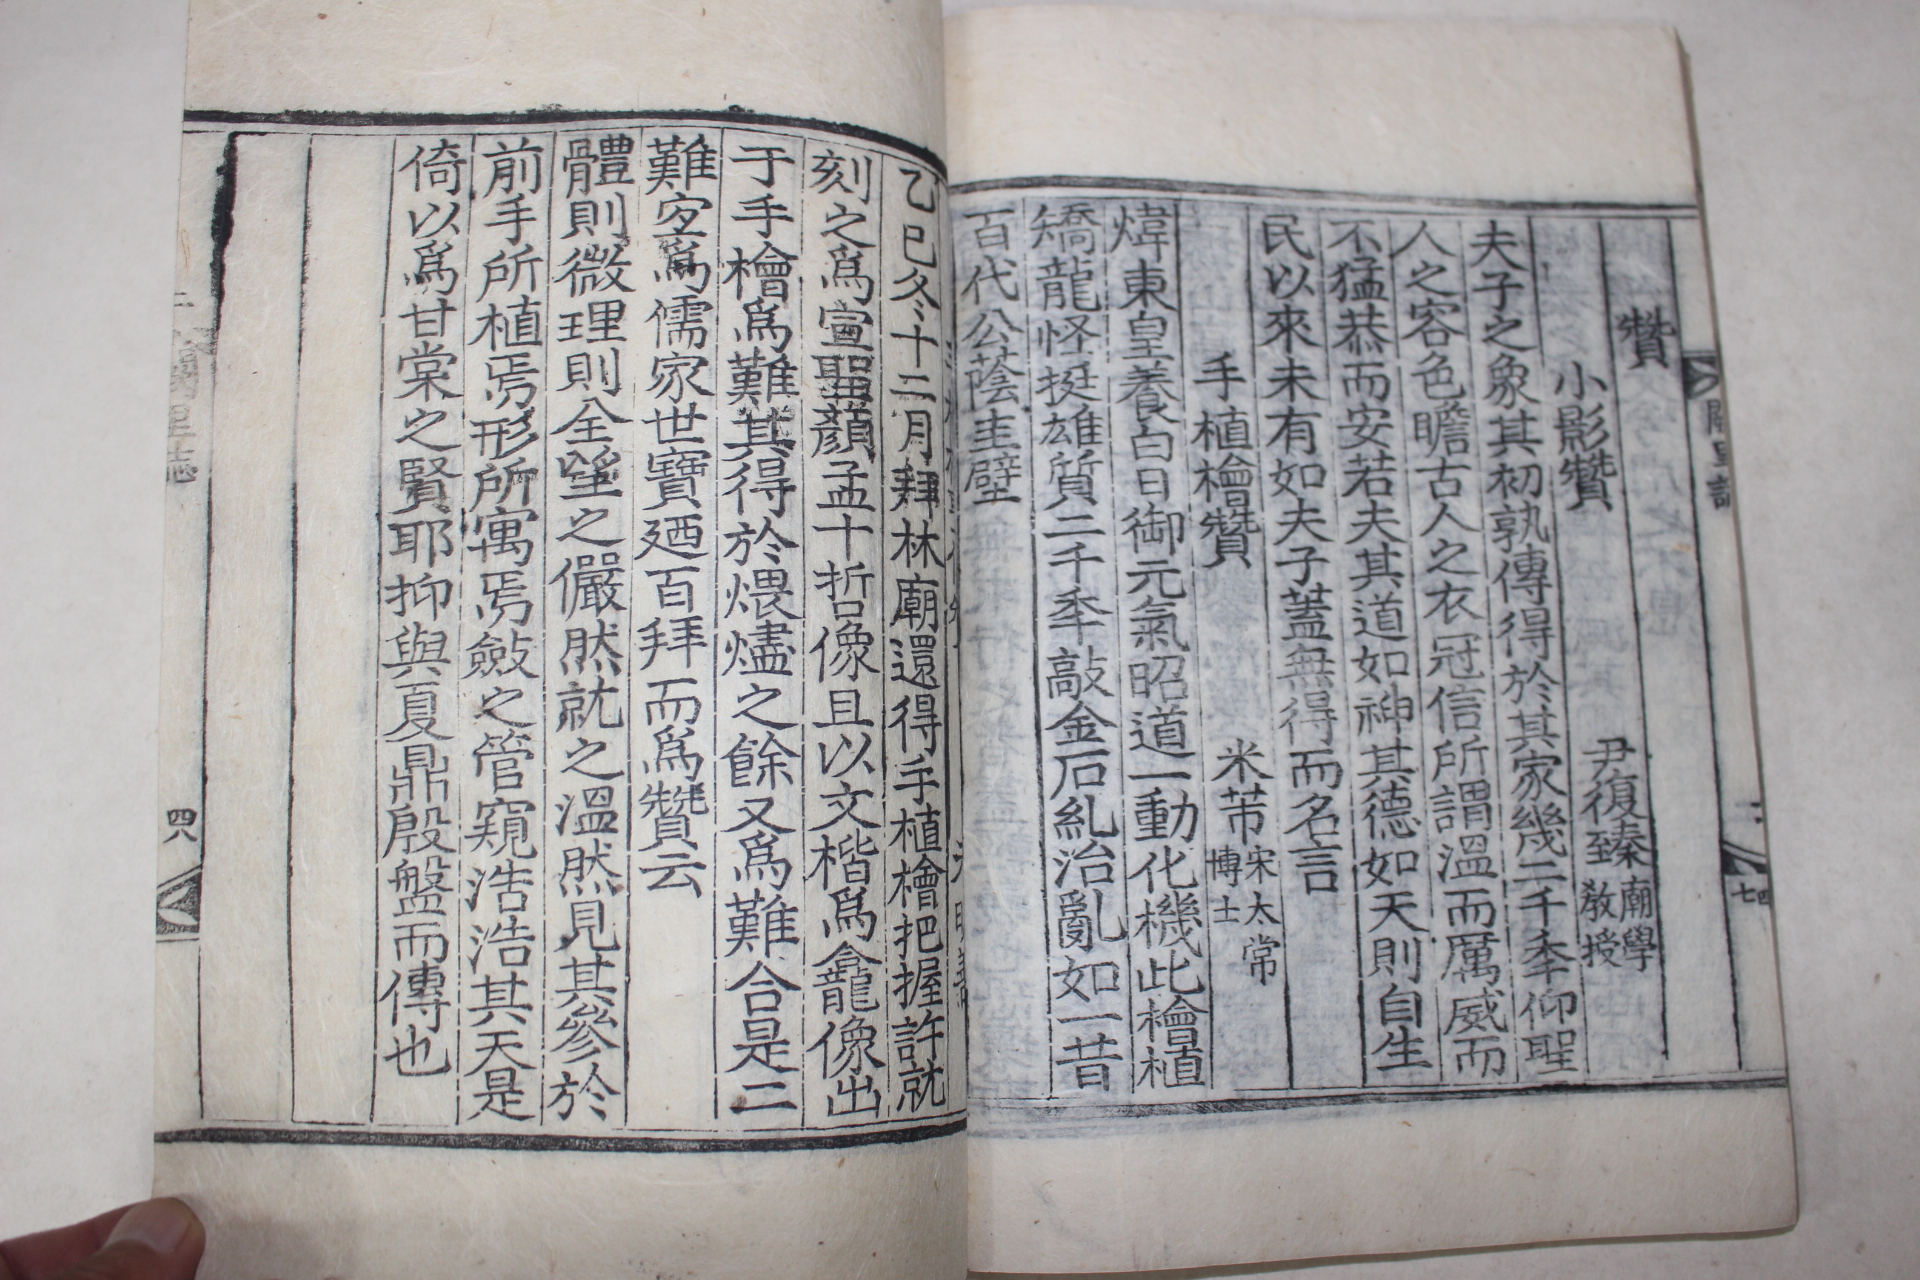 贊
小影贊 尹復臻 廟學教授
夫子之象其初孰傳得於其家幾二千季仰聖
人之容色瞻古人之衣冠信所謂溫而厲威而
不猛恭而安若夫其道如神其德如天則自生
民以來未有如夫子蓋無得而名言
手植檜贊 米芾 宋太常博士
煒東皇養白日御元氣昭道一動化機此檜植
矯龍怪挺雄質二千季敲金石糺治亂如一昔
百代公蔭圭璧
乙巳冬十二月拜林廟還得手植檜把握許就
刻之爲宣聖顏孟十哲像且以文楷爲龕像出
于手檜爲難其得於煨燼之餘又爲難合是二
難宜爲儒家世寶廼百拜而爲贊云
體則微理則全望之儼然就之溫然見其參於
前手所植焉形所寓焉斂之管窺浩浩其天是
倚以爲甘棠之賢耶抑與夏鼎殷盤而傳也
闕里誌
二
四七
闕里誌
四八